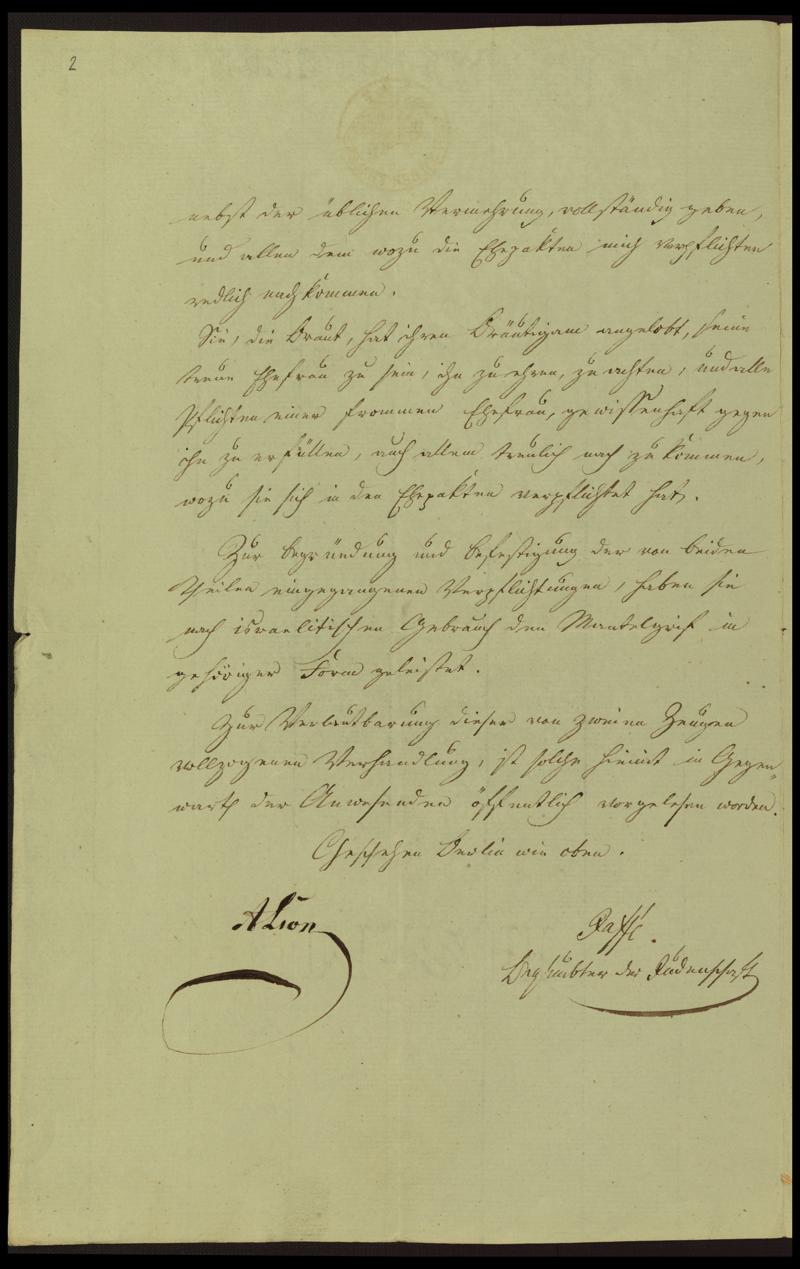 2
nebst der üblichen Vermehrung, vollständig geben,
und allen dem wozu die Ehepakten mich verpflichten
redlich nachkommen.
Sie, die Braut, hat ihren Bräutigam angelobt, seine
treue Ehefrau zu sein, ihn zu ehren, zu achten, und alle
Pflichten einer frommen Ehefrau, gewissenhaft gegen
ihn zu erfüllen, auch allem treulich nach zu kommen,
wozu sie sich in den Ehepakten verpflichtet hat.
Zur begründung und befestigung der von beiden
Theilen eingegangenen Verpflichtungen, haben sie
nach israelitischen Gebrauch den Mantelgrif in
gehöriger Form geleistet.
Zur Verlautbarung dieser von zweien Zeugen
vollzogenen Verhandlung, ist solche hiemit in Gegen„
warth der Anwesenden öffentlich vorgelesen worden.
Geschehen Berlin wie oben.
A Lion
der Judenschaft